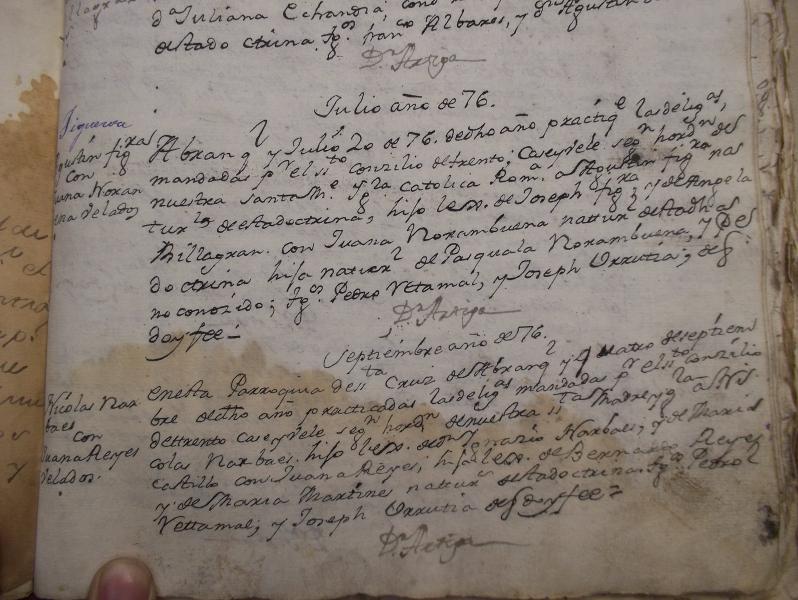 Da Juliana Echandia, cono
deestadoctrina. tgos franco Albares, y dn Agustin
Dr Artiga
Julio año de 76.
Figueroa
Agustin figras
con
Juana Noran
buena Velados
Abranql y Julio 20 de 76. dedho año practiqe lasdeligas,
mandadas pr elsto Conzilio detrento; Caseyvele segn hordn des
nuestra santa Me. yga la catolica Roma. a Agustin figra nas
turls deestadoctrina, hijo lexo. de Joseph figra; y de Angela
Billagran. con Juana Norambuena naturl deestadhas
doctrina hija naturl de Pasquala Norambuena, y Pes
no conozido; tgos. Pedro Vetamal, y Joseph Urrutia; deqe
doyfee =
Dr Artiga
Septiembre año de 76.
Nicolas Nar
baes
con
Juana Reyes
Velados.
enesta Parroquia desta Cruz de Abranql y 4 quatro deseptiem
bre dedho año practicadas lasdeligas mandadas pr elsto Conzilio
detrento caseyvele segn hordn denuestra sta Madre yga a Nis
colas Narbaes. hijo lexo. de dn Ygnazio Narbaes, y de Maria
Castillo con Juana Reyes; hija lexa. de Bernardo Reyes
y de Maria Martines naturs deestadoctrina. tgos Pedro
Vettamal; y Joseph Urrutia deq doyfee =
Dr Artiga